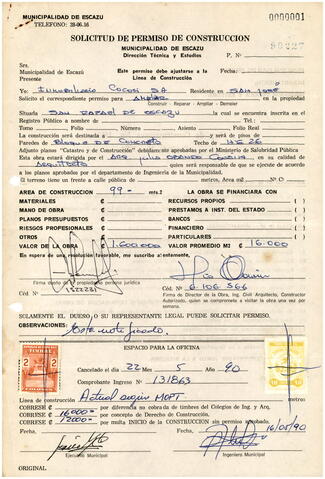 MUNICIPALIDAD DE ESCAZU
TELEFONO: 28-06-16
0000001
SOLICITUD DE PERMISO DE CONSTRUCCION
MUNICIPALIDAD DE ESCAZU
Dirección Técnica y Estudios P. Nº
Srs.
Municipalidad de Escazú
Fecha
Este permiso debe ajustarse a la
Línea de Construcción
Yo: INMOBILIARIA COCORI SA Residente en SAN JOSÉ
Solicito el correspondiente permiso para AMPLIAR en la propiedad
Construir - Reparar - Ampliar - Demoler
Situada SAN RAFAEL DE ESCAZU la cual se encuentra inscrita en el
Registro Público a nombre de
Tomo Folio Número Asiento Folio Real
La construcción será destinada a y constará de
Paredes de BLOQUE DE CONCRETO Techo de HG 26
Adjunto planos "Catastro y de Construcción" debidamente aprobados por el Ministerio de Salubridad Pública
Esta obra estará dirigida por el ARQ en su calidad de
ARQUITECTO será responsable de que se ejecute de acuerdo
a los planos aprobados por el departamento de Ingeniería de la Municipalidad.
El terreno tiene un frente a calle pública de metros, área m2.
AREA DE CONSTRUCCION 99 - mts.2 LA OBRA SE FINANCIARA CON
MATERIALES ¢ RECURSOS PROPIOS ( ) ¢
MANO DE OBRA ¢ PRESTAMOS A INST. DEL ESTADO ¢
PLANOS PRESUPUESTOS ¢ BANCOS ( ) ¢
RIESGOS PROFESIONALES ¢ FINANCIERO ( ) ¢
OTROS ¢ PARTICULARES ( ) ¢
VALOR DE LA OBRA ¢ 1.600.000 VALOR PROMEDIO M2 ¢ 16.000
En espera de una resolución favorable, me suscribo atentamente,
Firma dueño de propiedad o persona jurídica
Céd. Nº
Céd. Nº 6 106 566
Firma de Director de la Obra, Ing. Civil Arquitecto, Constructor
Autorizado, quien se compromete a visitar la obra una vez por
semana.
SOLAMENTE EL DUEÑO O SU REPRESENTANTE LEGAL PUEDE SOLICITAR PERMISO.
OBSERVACIONES:
ESPACIO PARA LA OFICINA
TIMBRE
2
Cancelado el 22 Mes 5 Año 90
Comprobante Ingreso Nº 131863
Línea de construcción Actual según MOPT
COBRESE ¢ 16000 por diferencia no cobrada de timbres del Colegios de Ing. y Arq.
COBRESE ¢ 12000 por multa INICIO de la CONSTRUCCION sin permiso aprobado.
16/05/90
Ejecutivo Municipal
Ingeniero Municipal
ORIGINAL